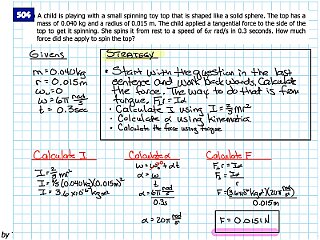 504 A child is playing with a small spinning toy top that is shaped like a solid sphere. The top has a
mass of 0.040 kg and a radius of 0.015 m. The child applied a tangential force to the side of the
top to get it spinning. She spins it from rest to a speed of 6π rad/s in 0.3 seconds. How much
force did she apply to spin the top?
Givens
m=0.040kg
r=0.015m
ω₀=0
ω=6π rad/s
t=0.3sec
STRATEGY
• Start with the question in the last
sentence and work backwards. Calculate
the force. The way to do that is from
torque. Fr=Iα
• Calculate I using I=2/5mr²
• Calculate α using kinematics
• Calculate the force using torque
Calculate I
I=2/5mr²
I=2/5(0.040kg)(0.015m)²
I=3.6x10⁻⁶kgm²
Calculate α
ω=ω₀+αt
α=ω/t
α=6π rad/s
0.3s
α=20π rad/s²
Calculate F
Fr=Iα
F=Iα/r
F=(3.6x10⁻⁶kgm²)(20π rad/s²)
0.015m
F=0.015N
by